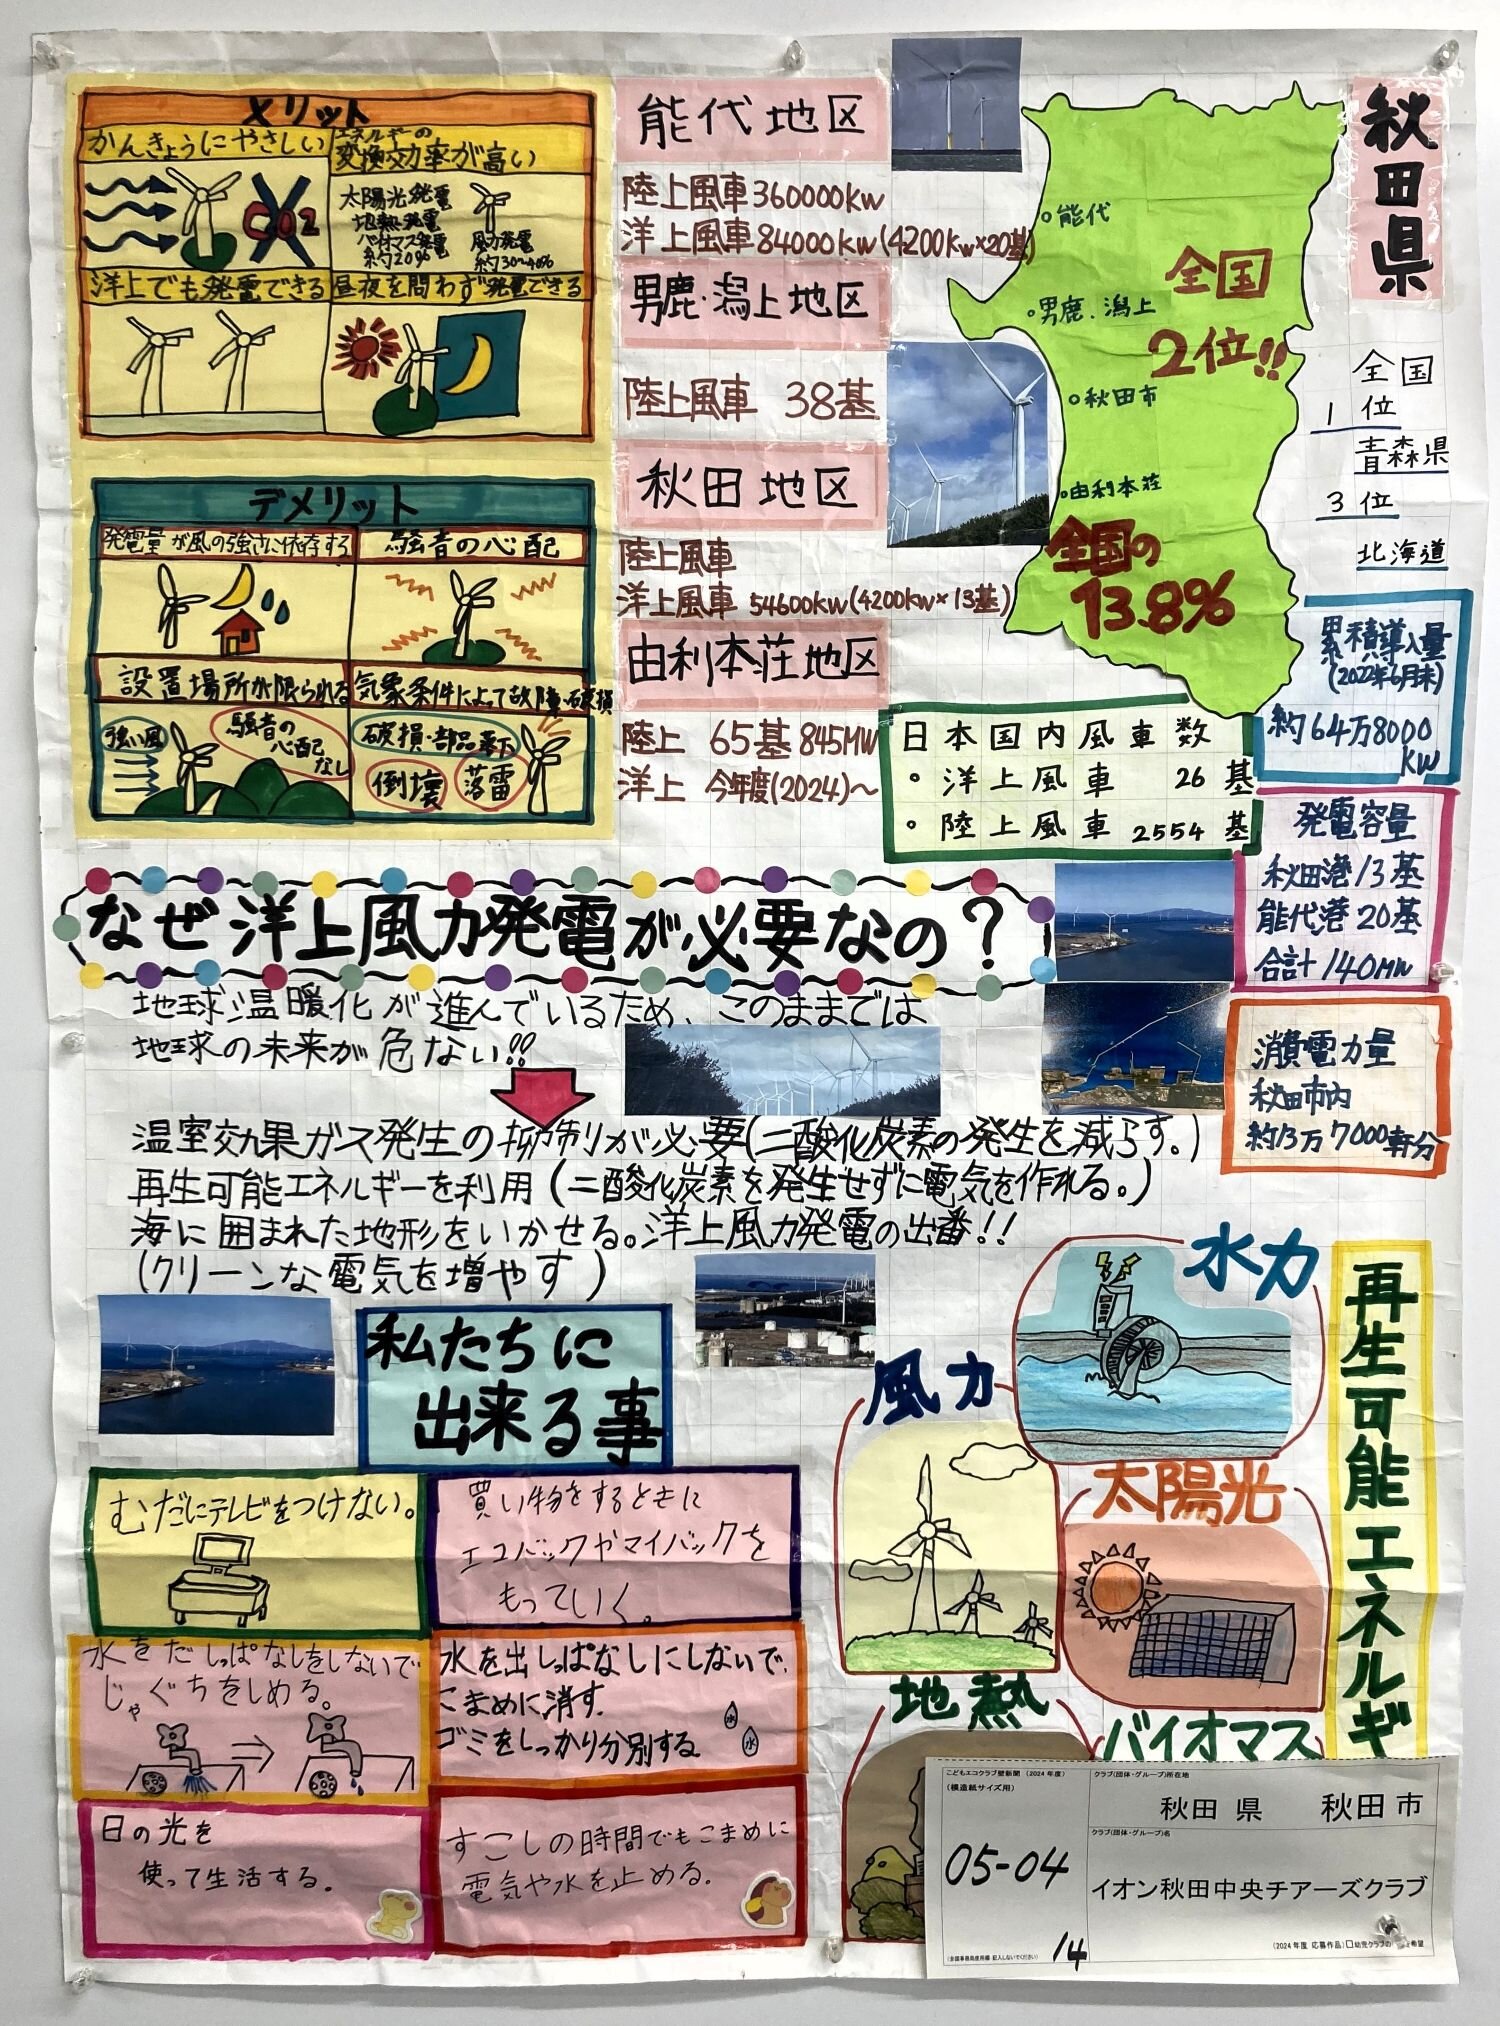 メリット
かんきょうにやさしい
エネルギーの
変換効率が高い
CO2
太陽光発電
地熱発電
バイオマス発電
約20%
風力発電
約30〜40%
洋上でも発電できる
昼夜を問わず発電できる
デメリット
発電量が風の強さに依存する
騒音の心配
設置場所が限られる
気象条件によって故障・破損
強い風
騒音の
心配
なし
破損・部品落下
倒壊
落雷
能代地区
陸上風車 360000kw
洋上風車 84000kw(4200kw×20基)
男鹿・潟上地区
陸上風車 38基
秋田地区
陸上風車
洋上風車 54600kw(4200kw×13基)
由利本荘地区
陸上 65基 845MW
洋上 今年度(2024)〜
秋田県
能代
男鹿.潟上
秋田市
由利本荘
全国
2位!!
全国の
13.8%
全国
1位
青森県
3位
北海道
累積導入量
(2022年6月末)
約64万8000
kw
日本国内風車数
・洋上風車 26基
・陸上風車 2554基
発電容量
秋田港13基
能代港20基
合計140MW
消費電力量
秋田市内
約13万7000軒分
なぜ洋上風力発電が必要なの?
地球温暖化が進んでいるため、このままでは
地球の未来が危ない!!
温室効果ガス発生の抑制が必要(二酸化炭素の発生を減らす。)
再生可能エネルギーを利用(二酸化炭素を発生せずに電気を作れる。)
海に囲まれた地形をいかせる。洋上風力発電の出番!!
(クリーンな電気を増やす)
私たちに
出来る事
むだにテレビをつけない。
買い物をするときに
エコバックやマイバックを
もっていく。
水をだしっぱなしをしないで
じゃぐちをしめる。
水を出しっぱなしにしないで、
こまめに消す.
ゴミをしっかり分別する
水
水
日の光を
使って生活する.
すこしの時間でもこまめに
電気や水を止める.
再生可能エネルギ
水力
風力
太陽光
地熱
バイオマス
こどもエコクラブ壁新聞(2024年度)
(模造紙サイズ用)
クラブ(団体・グループ)所在地
秋田県 秋田市
05-04
クラブ(団体・グループ)名
イオン秋田中央チアーズクラブ
(全国事務局使用欄 記入しないでください)
14
(2024年度 応募作品)□幼児クラブの
希望